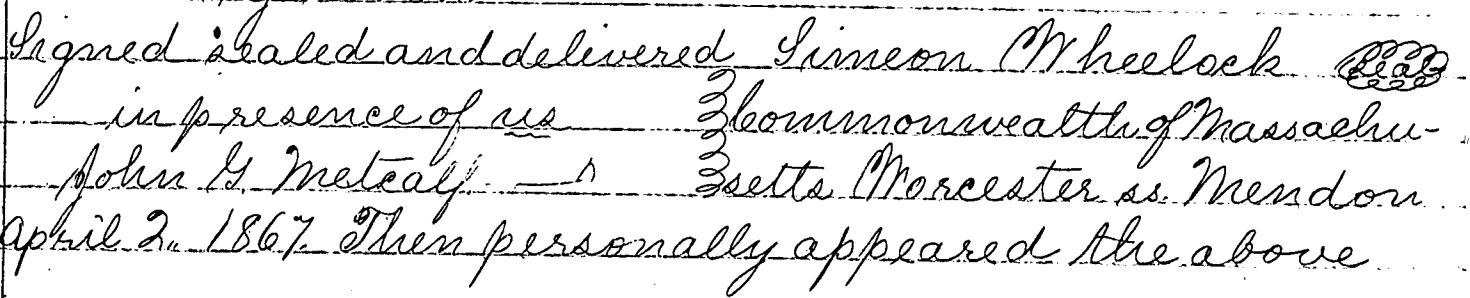 Signed sealed and delivered Simeon Wheelock Seal
in presence of us Commonwealth of Massachu-
John G. Metcalf setts Worcester ss. Mendon
April 2. 1867. Then personally appeared the above